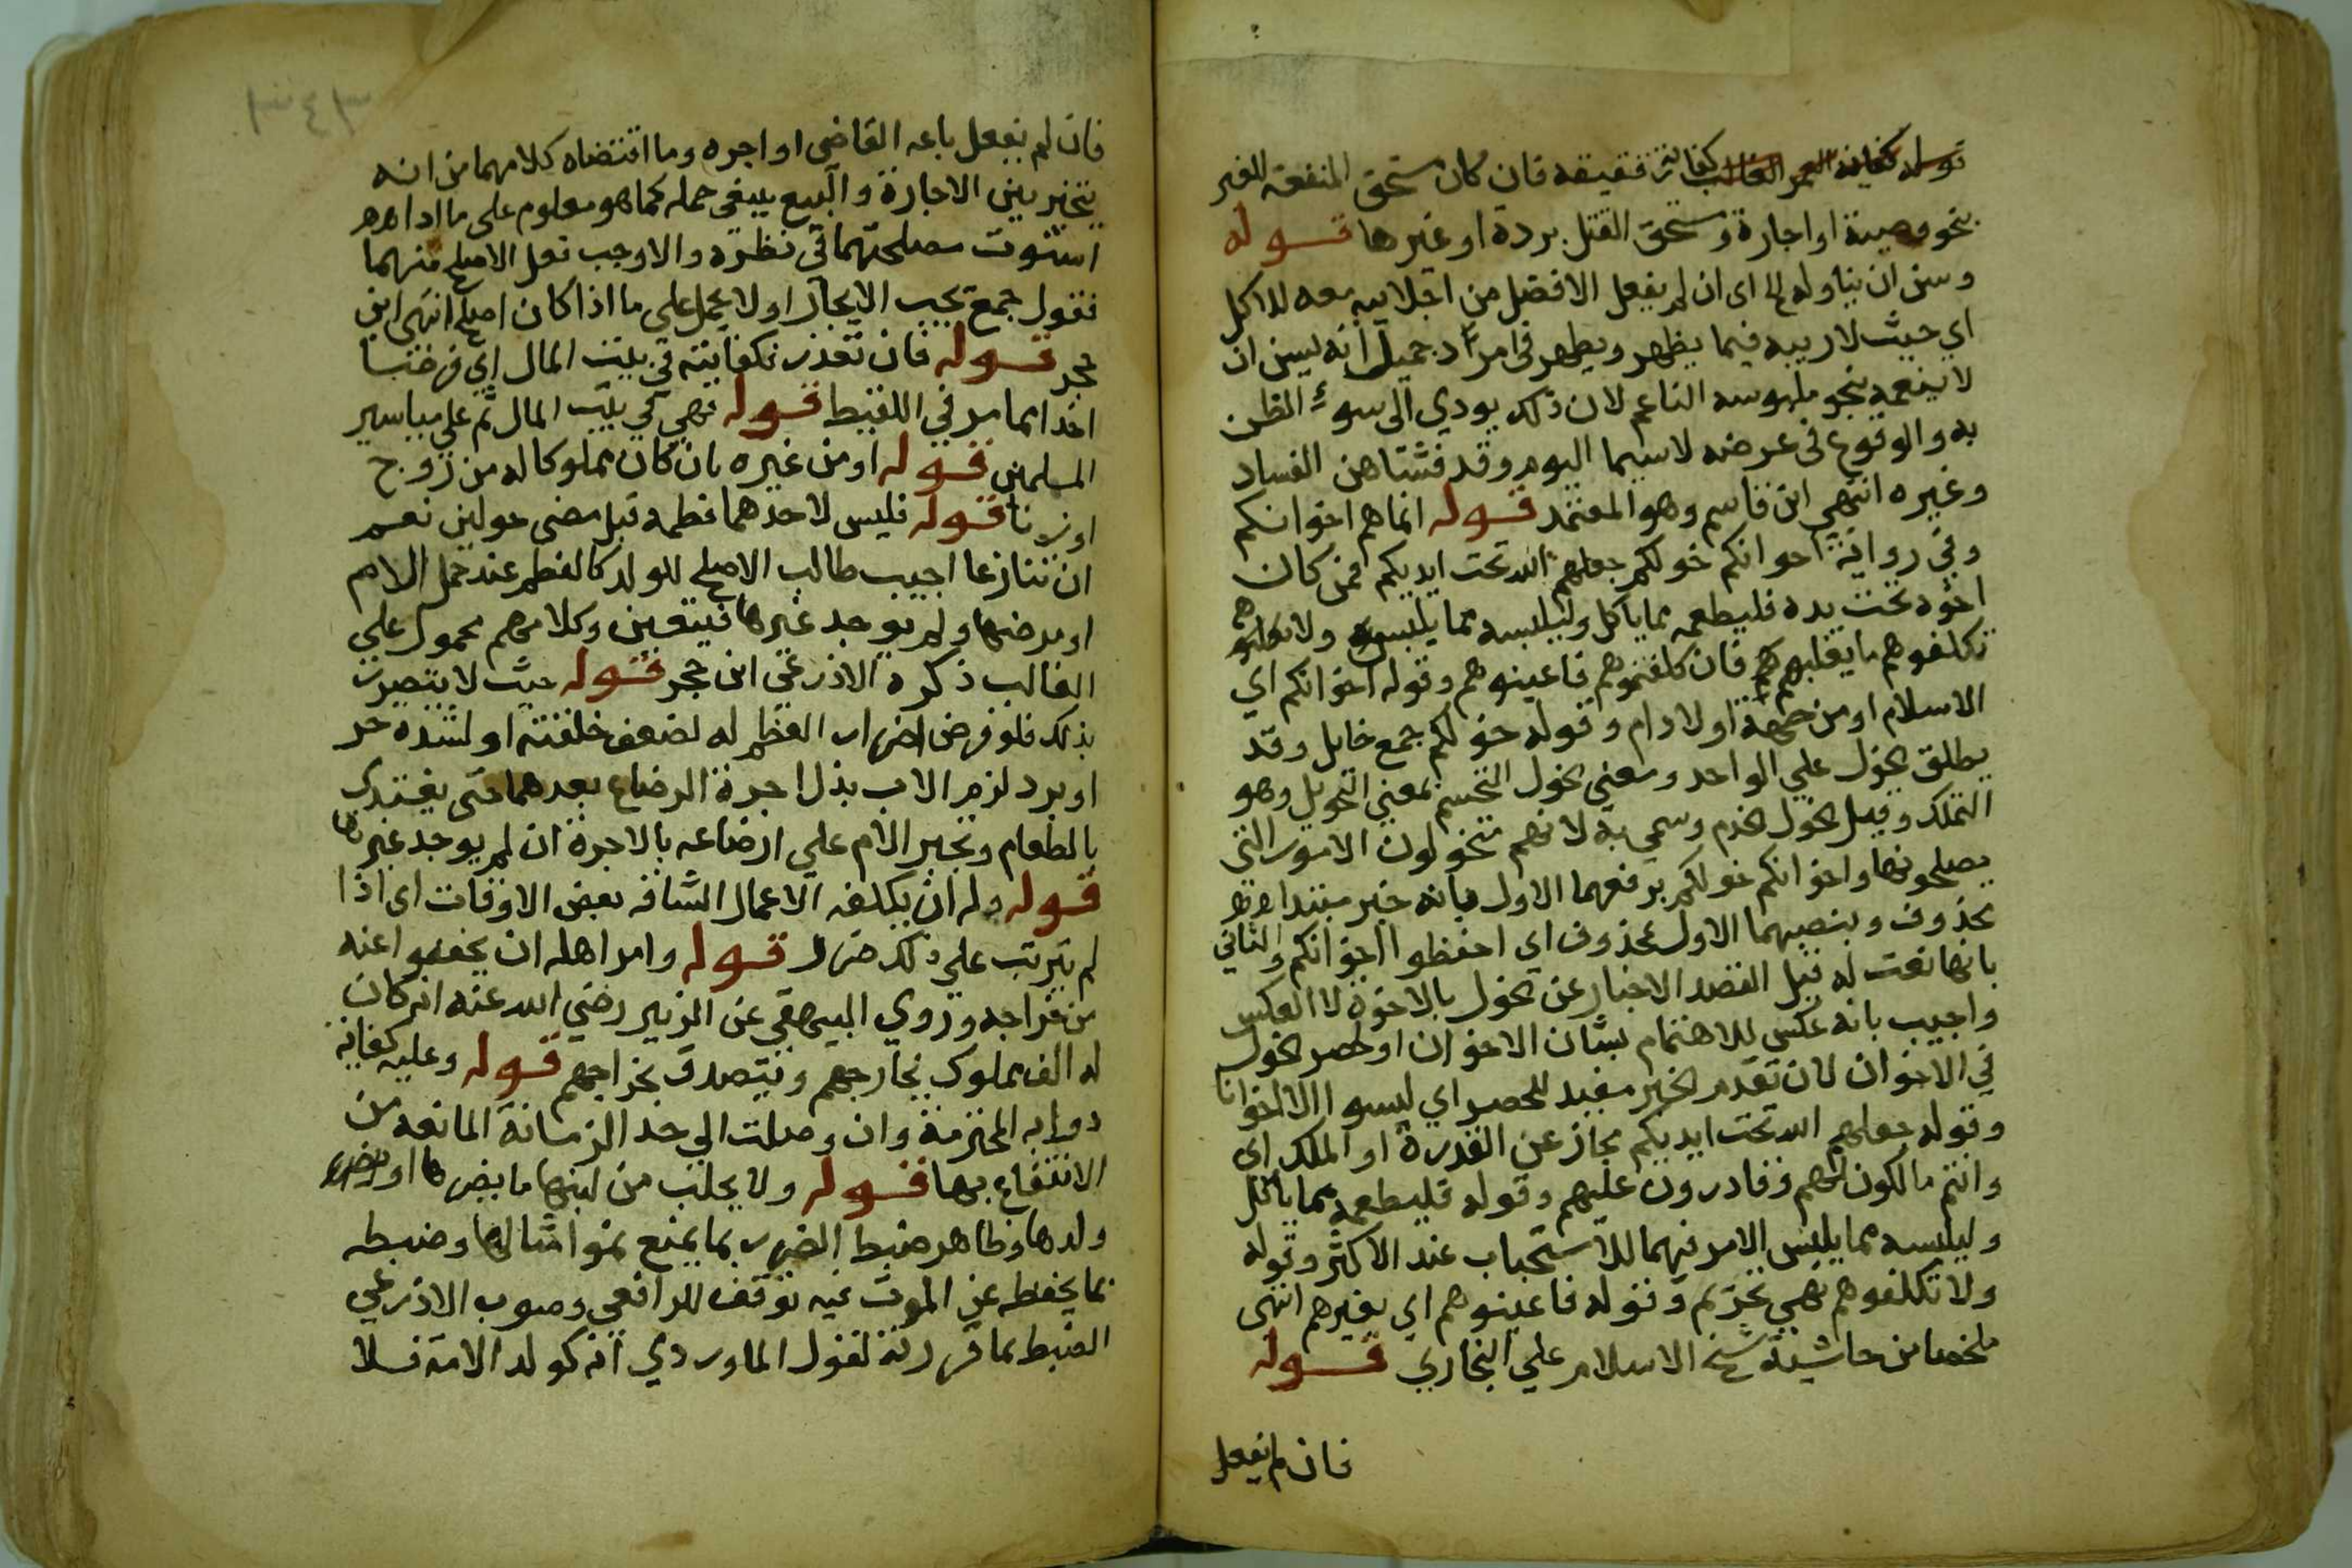 كفايته رقيقه فان كان مستحق المنفعة للغير
بنحو وصية او اجارة ومستحق القتل بردة او غيرها قوله
وسن ان يناوله الخ اى ان لم يفعل الافضل من اجلاسه معه للاكل
اي حيث لا ريبه فيما يظهر ويظهر في امرد جميل انه يسن ان
لا ينعمه بنحو ملبوسه الناعم لان ذلك يودي الى سوء الظن
به والوقوع في عرضه لاسيما اليوم وقد فشتا هن الفساد
وغيره انتهي ابن قاسم وهو المعتمد قوله انما هم اخوانكم
وفي رواية اخوانكم خولكم جعلهم الله تحت ايديكم فمن كان
اخوه تحت يده فليطعمه مما ياكل وليلبسه مما يلبس ولا
تكلفوهم ما يغلبهم فان كلفتموهم فاعينوهم وقوله اخوانكم اي
الاسلام او من جهة اولاد ادم وقوله خولكم جمع خايل وقد
يطلق الخول علي الواحد ومعني الخول الحشم بمعني التخويل وهو
التملك وقيل الخول الخدم وسمي به لانهم يتخولون الامور التي
يصلحونها واخوانكم خولكم برفعهما الاول بانه خبر مبتدا
محذوف وبنصبهما الاول بمحذوف اي احفظوا اخوانكم والثاني
بانها نعت له قيل القصد الاخبار عن الخول بالاخوة لا العكس
واجيب بانه عكس للاهتمام بشان الاخوان او لحصر الخول
في الاخوان لان تقدم الخبر مفيد للحصر اي ليسوا الا اخوانا
وقوله جعلهم الله تحت ايديكم مجاز عن القدرة او الملك اي
وانتم مالكون لهم وقادرون عليهم وقوله فليطعمه مما ياكل
وليلبسه مما يلبس الامر فيهما للاستحباب عند الاكثر وقوله
ولا تكلفوهم نهي تحريم وقوله فاعينوهم اي بغيرهم انتهى
ملخصا من حاشية شيخ الاسلام علي البخاري قوله
فان لم يفعل
٣٤٣
فان لم يفعل باعه القاضى او اجره وما اقتضاه كلامهما من انه
يتخير بين الاجارة والبيع ينبغي حمله كما هو معلوم على ما اذا
استوت مصلحتهما في نظره والا وجب فعل الاصلح منهما
فقول جمع يجب الايجار اولا يحمل على ما اذا كان اصلح انتهى ابن
حجر قوله فان تعذر فكفايته في بيت المال اي قرضا
اخذا مما مر في اللقيط قوله فهي في بيت المال ثم علي مياسير
المسلمين قوله او من غيره بان كان مملوكا له من زوج
او زنا قوله فليس لاحدهما فطمه قبل مضى حولين نعم
ان تنازعا اجيب طالب الاصلح للولد كالفطم عند حمل الام
او مرضها ولم يوجد غيرها فيتعين وكلامهم محمول علي
الغالب ذكره الاذرعي ابن حجر قوله حيث لا يتضرر
بذلك فلو فرض اضرار الفطم له لضعف خلقته او لشدة حر
او برد لزم الاب بذل اجرة الرضاع بعدهما حتى يغتذى
بالطعام وتجبر الام علي ارضاعه بالاجرة ان لم يوجد غيرها
قوله وله ان يكلفه الاعمال الشاقه بعض الاوقات اى اذا
لم يترتب علي ذلك ضرر قوله وامر اهله ان يخففوا عنه
من خراجه وروي البيهقي عن الزبير رضي الله عنه انه كان
له الف مملوك يخارجهم ويتصدق بخراجهم قوله وعليه كفاية
دوابه المحترمة وان وصلت الي حد الزمانة المانعه من
الانتفاع بها قوله ولا يحلب من لبنها ما يضرها او
ولدها وظاهر ضبط الضرر بما يمنع نمو امثالها وضبطه
بما يحفظه عن الموت فيه توقف للرافعي وصوب الاذرعي
الضبط بما قررته لقول الماوردي انه كولد الامة فلا